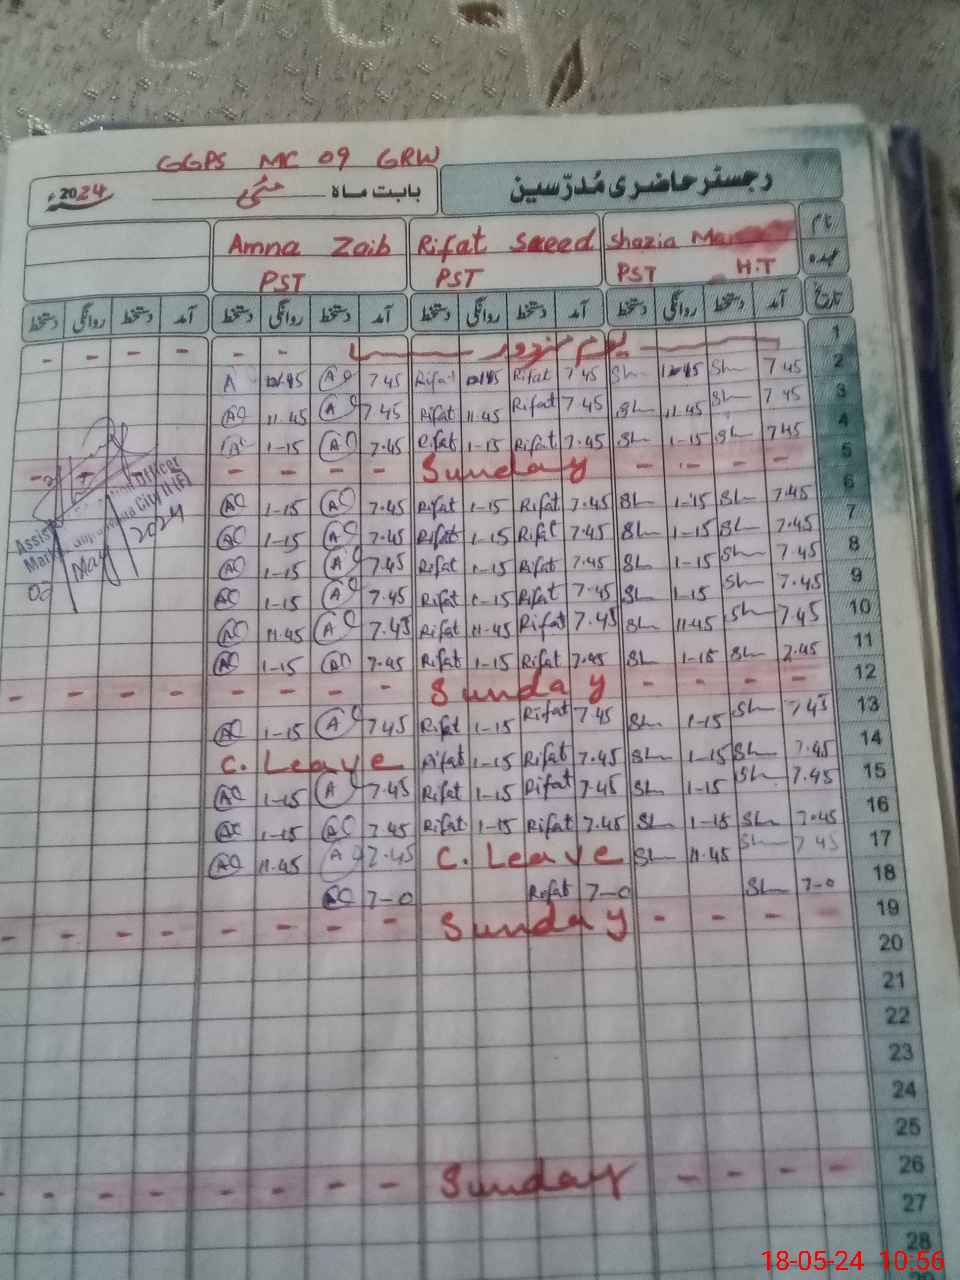 GGPS MC 09 GRW
رجسٹر حاضری مُدرّسین
بابت ماہ مئی 2024ء
نام Shazia Rifat Saeed Amna Zaib
عہدہ H.T PST PST PST
تاریخ آمد دستخط روانگی دستخط آمد دستخط روانگی دستخط آمد دستخط روانگی دستخط آمد دستخط روانگی دستخط
1 یوم مزدور
2 7 45 Sh Sh 7 45 Rifat Rifat 7 45
3 7 45 Sh 11.45 Sh 7.45 Rifat 11.45 Rifat 7.45 11.45
4 7.45 Sh 1-15 Sh 7.45 Rifat 1-15 Rifat 7.45 1-15
5 - - - - Sunday - - - -
6 7.45 Sh 1-15 Sh 7.45 Rifat 1-15 Rifat 7.45 1-15
7 7.45 Sh 1-15 Sh 7.45 Rifat 1-15 Rifat 7.45 1-15
8 7.45 Sh 1-15 Sh 7.45 Rifat 1-15 Rifat 7.45 1-15
9 7.45 Sh 1-15 Sh 7.45 Rifat 1-15 Rifat 7.45 1-15
10 7.45 Sh 11.45 Sh 7.45 Rifat 11.45 Rifat 7.45 11.45
11 7.45 Sh 1-15 Sh 7.45 Rifat 1-15 Rifat 7.45 1-15
12 - - - - Sunday - - - -
13 7.45 Sh 1-15 Sh 7.45 Rifat 1-15 Rifat 7.45 1-15
14 7.45 Sh 1-15 Sh 7.45 Rifat 1-15 Rifat C. Leave
15 7.45 Sh 1-15 Sh 7.45 Rifat 1-15 Rifat 7.45 1-15
16 7.45 Sh 1-15 Sh 7.45 Rifat 1-15 Rifat 7.45 1-15
17 7 45 Sh 11.45 Sh C. Leave 7.45 11.45
18 7-0 Sh 7-0 Rifat 7-0
19 - - - - Sunday - - - -
20
21
22
23
24
25
26 - - - - Sunday - - - -
27
28
Officer
Civil (F)
May 2024
18-05-24 10:56